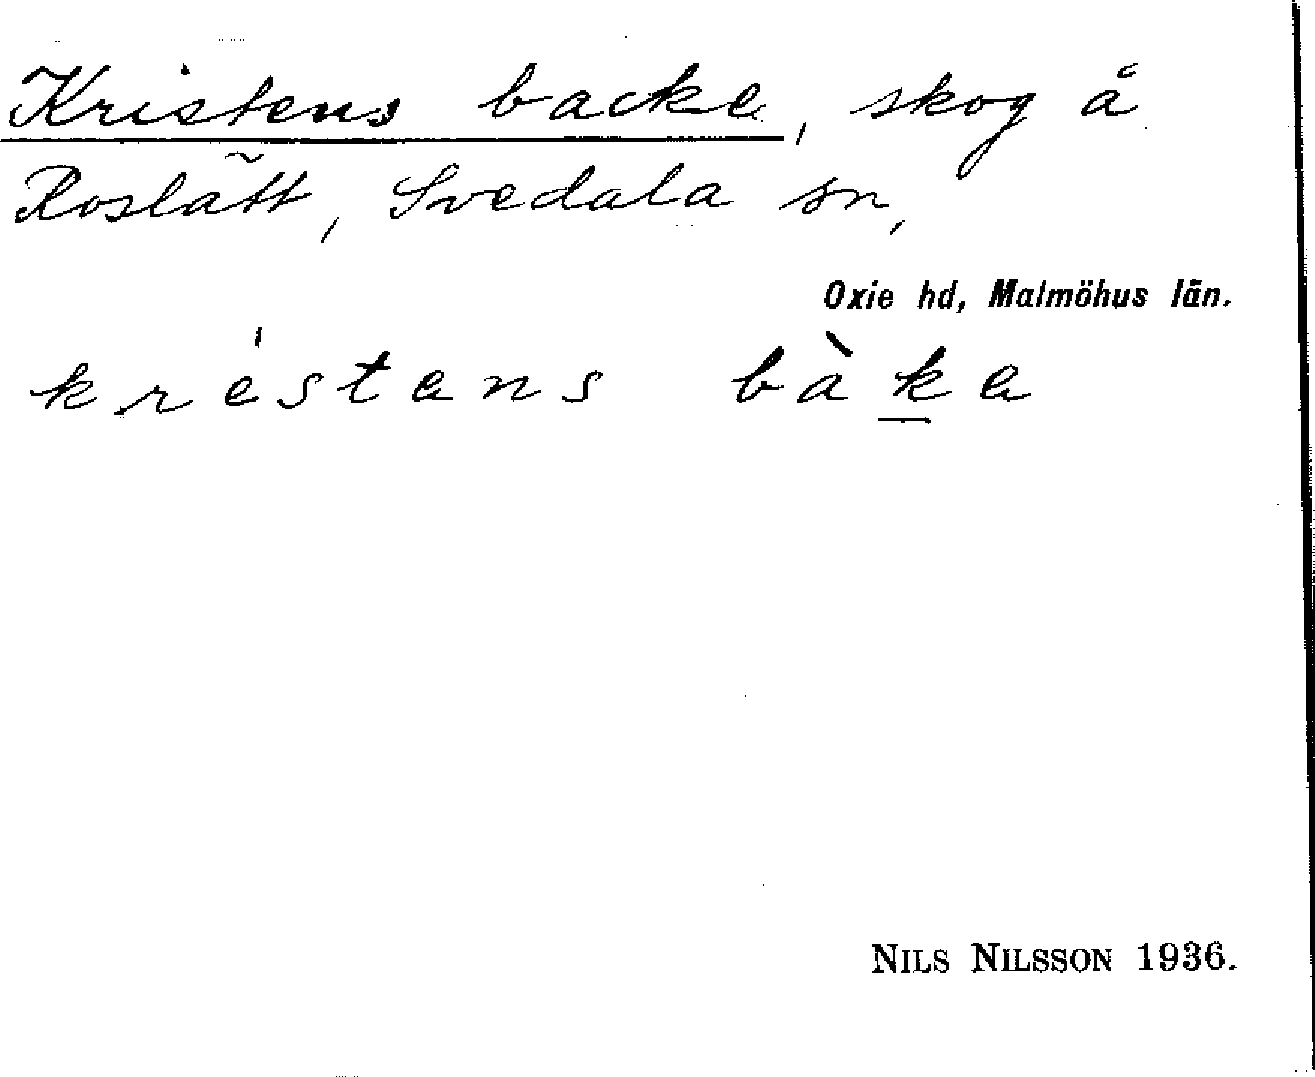 Kristens backe, skog å
Roslätt, Svedala sn,
Oxie hd, Malmöhus län.
kréstens bàke
NILS NILSSON 1936.